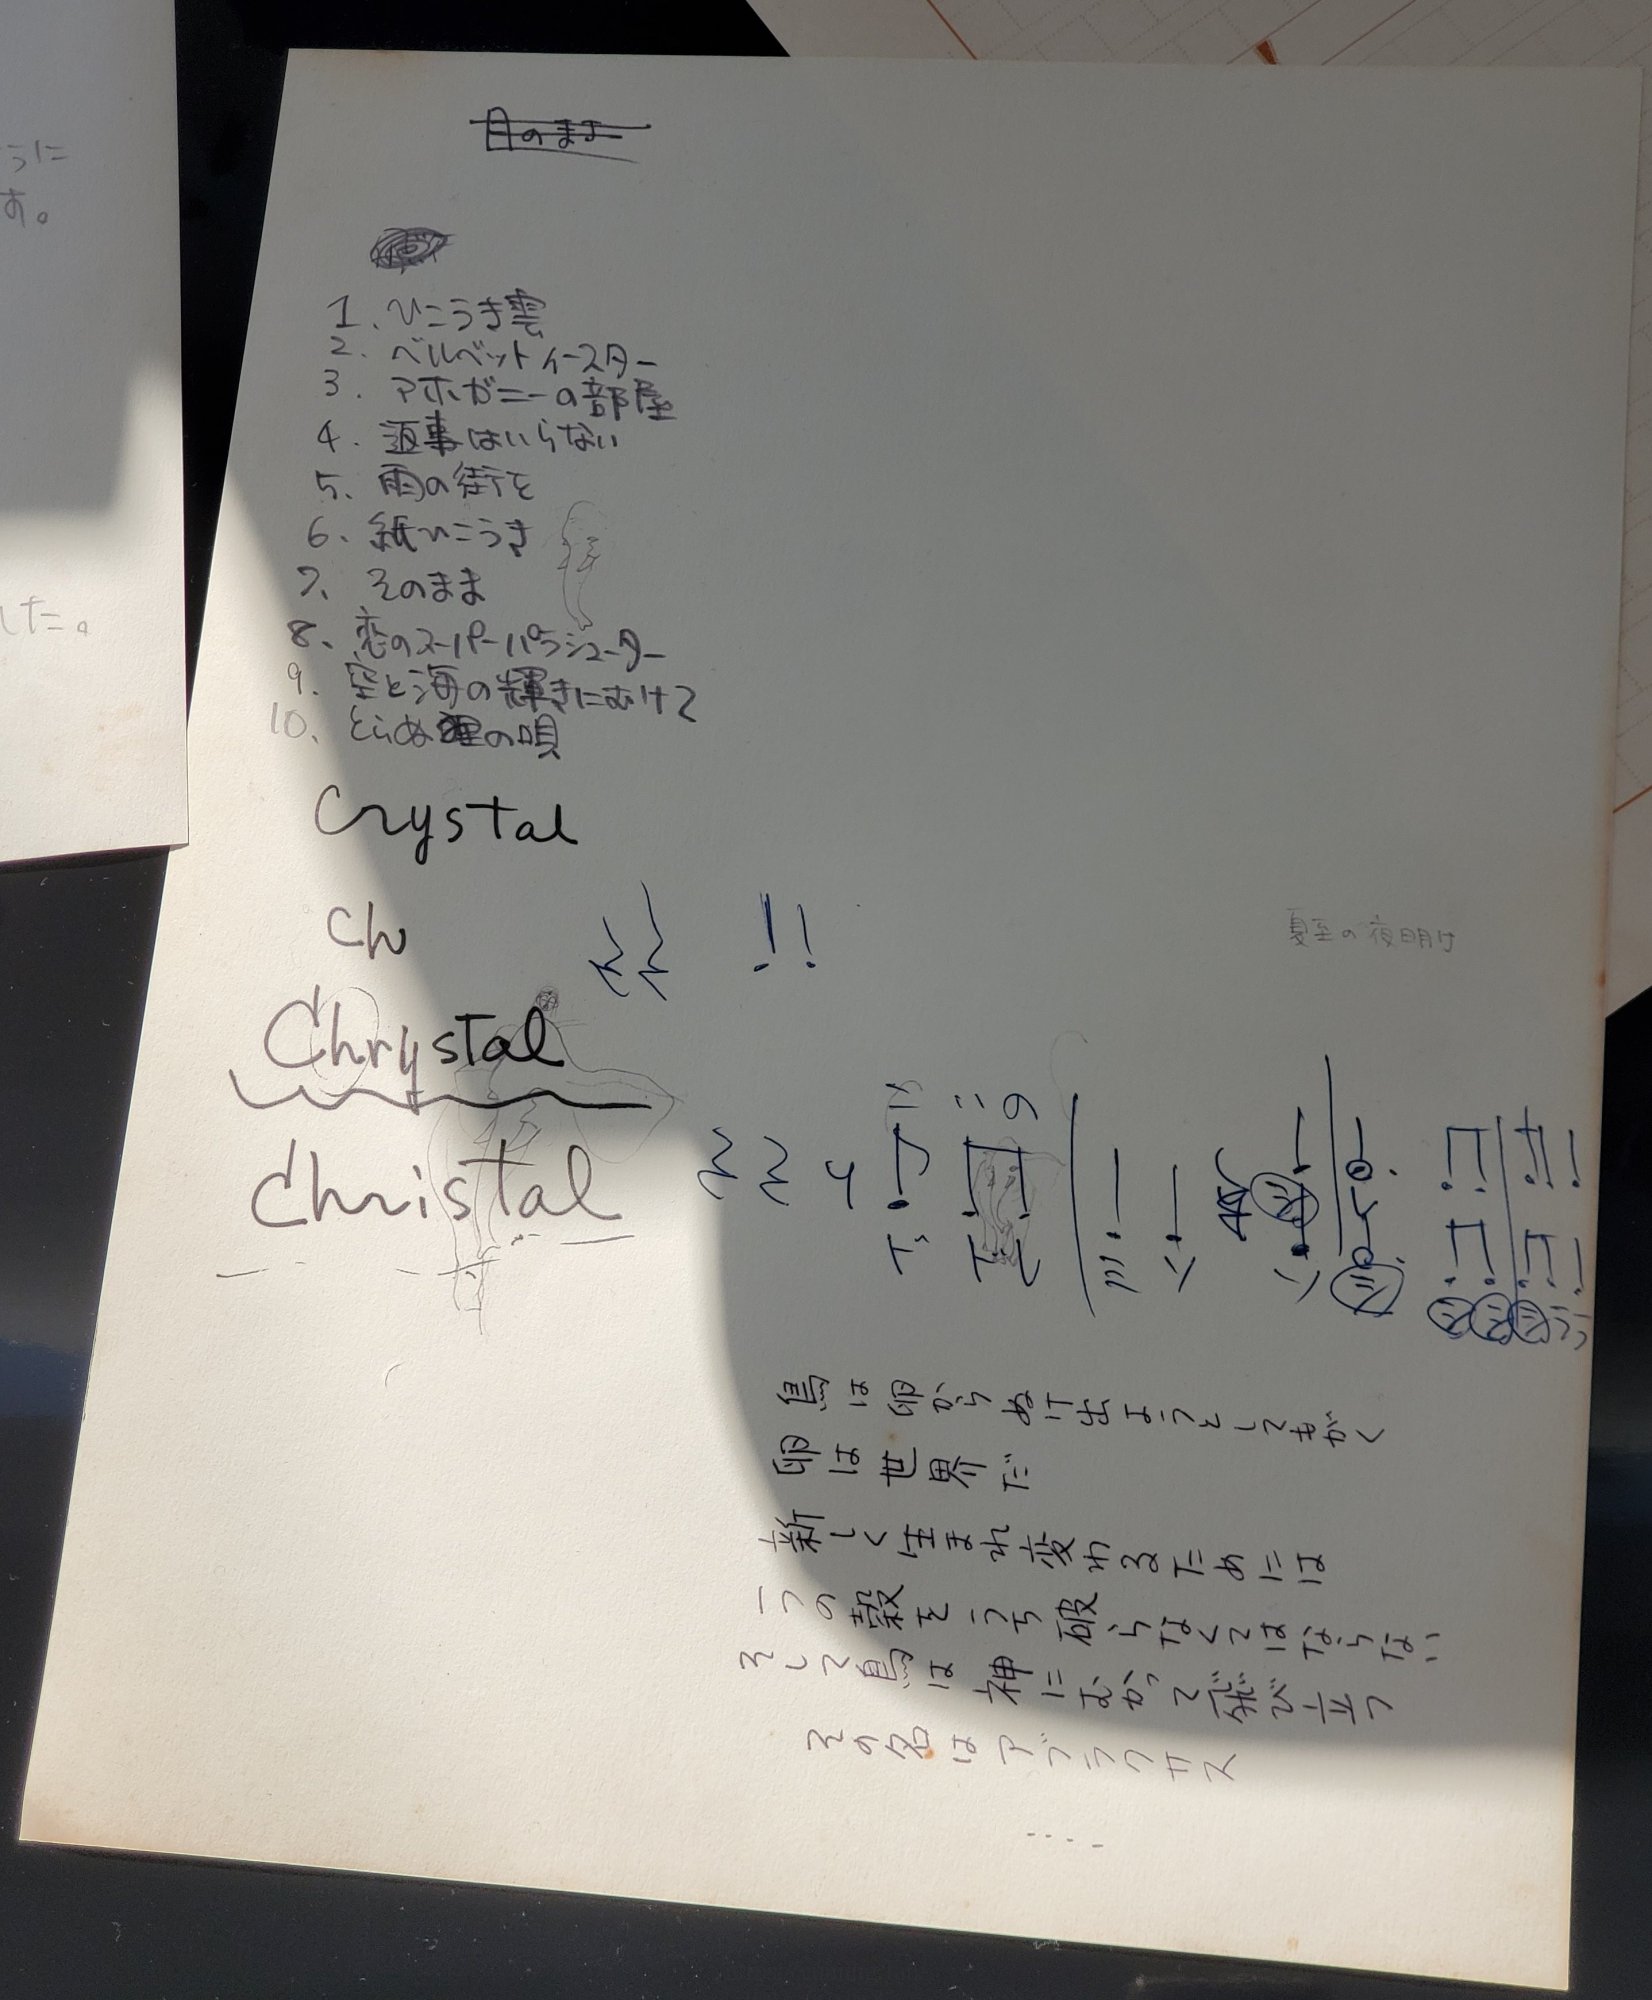 うに
す。
した。
1. ひこうき雲
2. ベルベットイースター
3. マホガニーの部屋
4. 返事はいらない
5. 雨の街を
6. 紙ひこうき
7. そのまま
8. 恋のスーパーパラシューター
9. 空と海の輝きにむけて
10. の唄
Crystal
Ch
Chrystal
Christal
!!
夏至の夜明け
鳥は卵からぬけ出ようとしてもがく
卵は世界だ
新しく生まれ変わるためには
一つの殻をうち破らなくてはならない
そして鳥は神にむかって飛び立つ
その名はアブラクサス